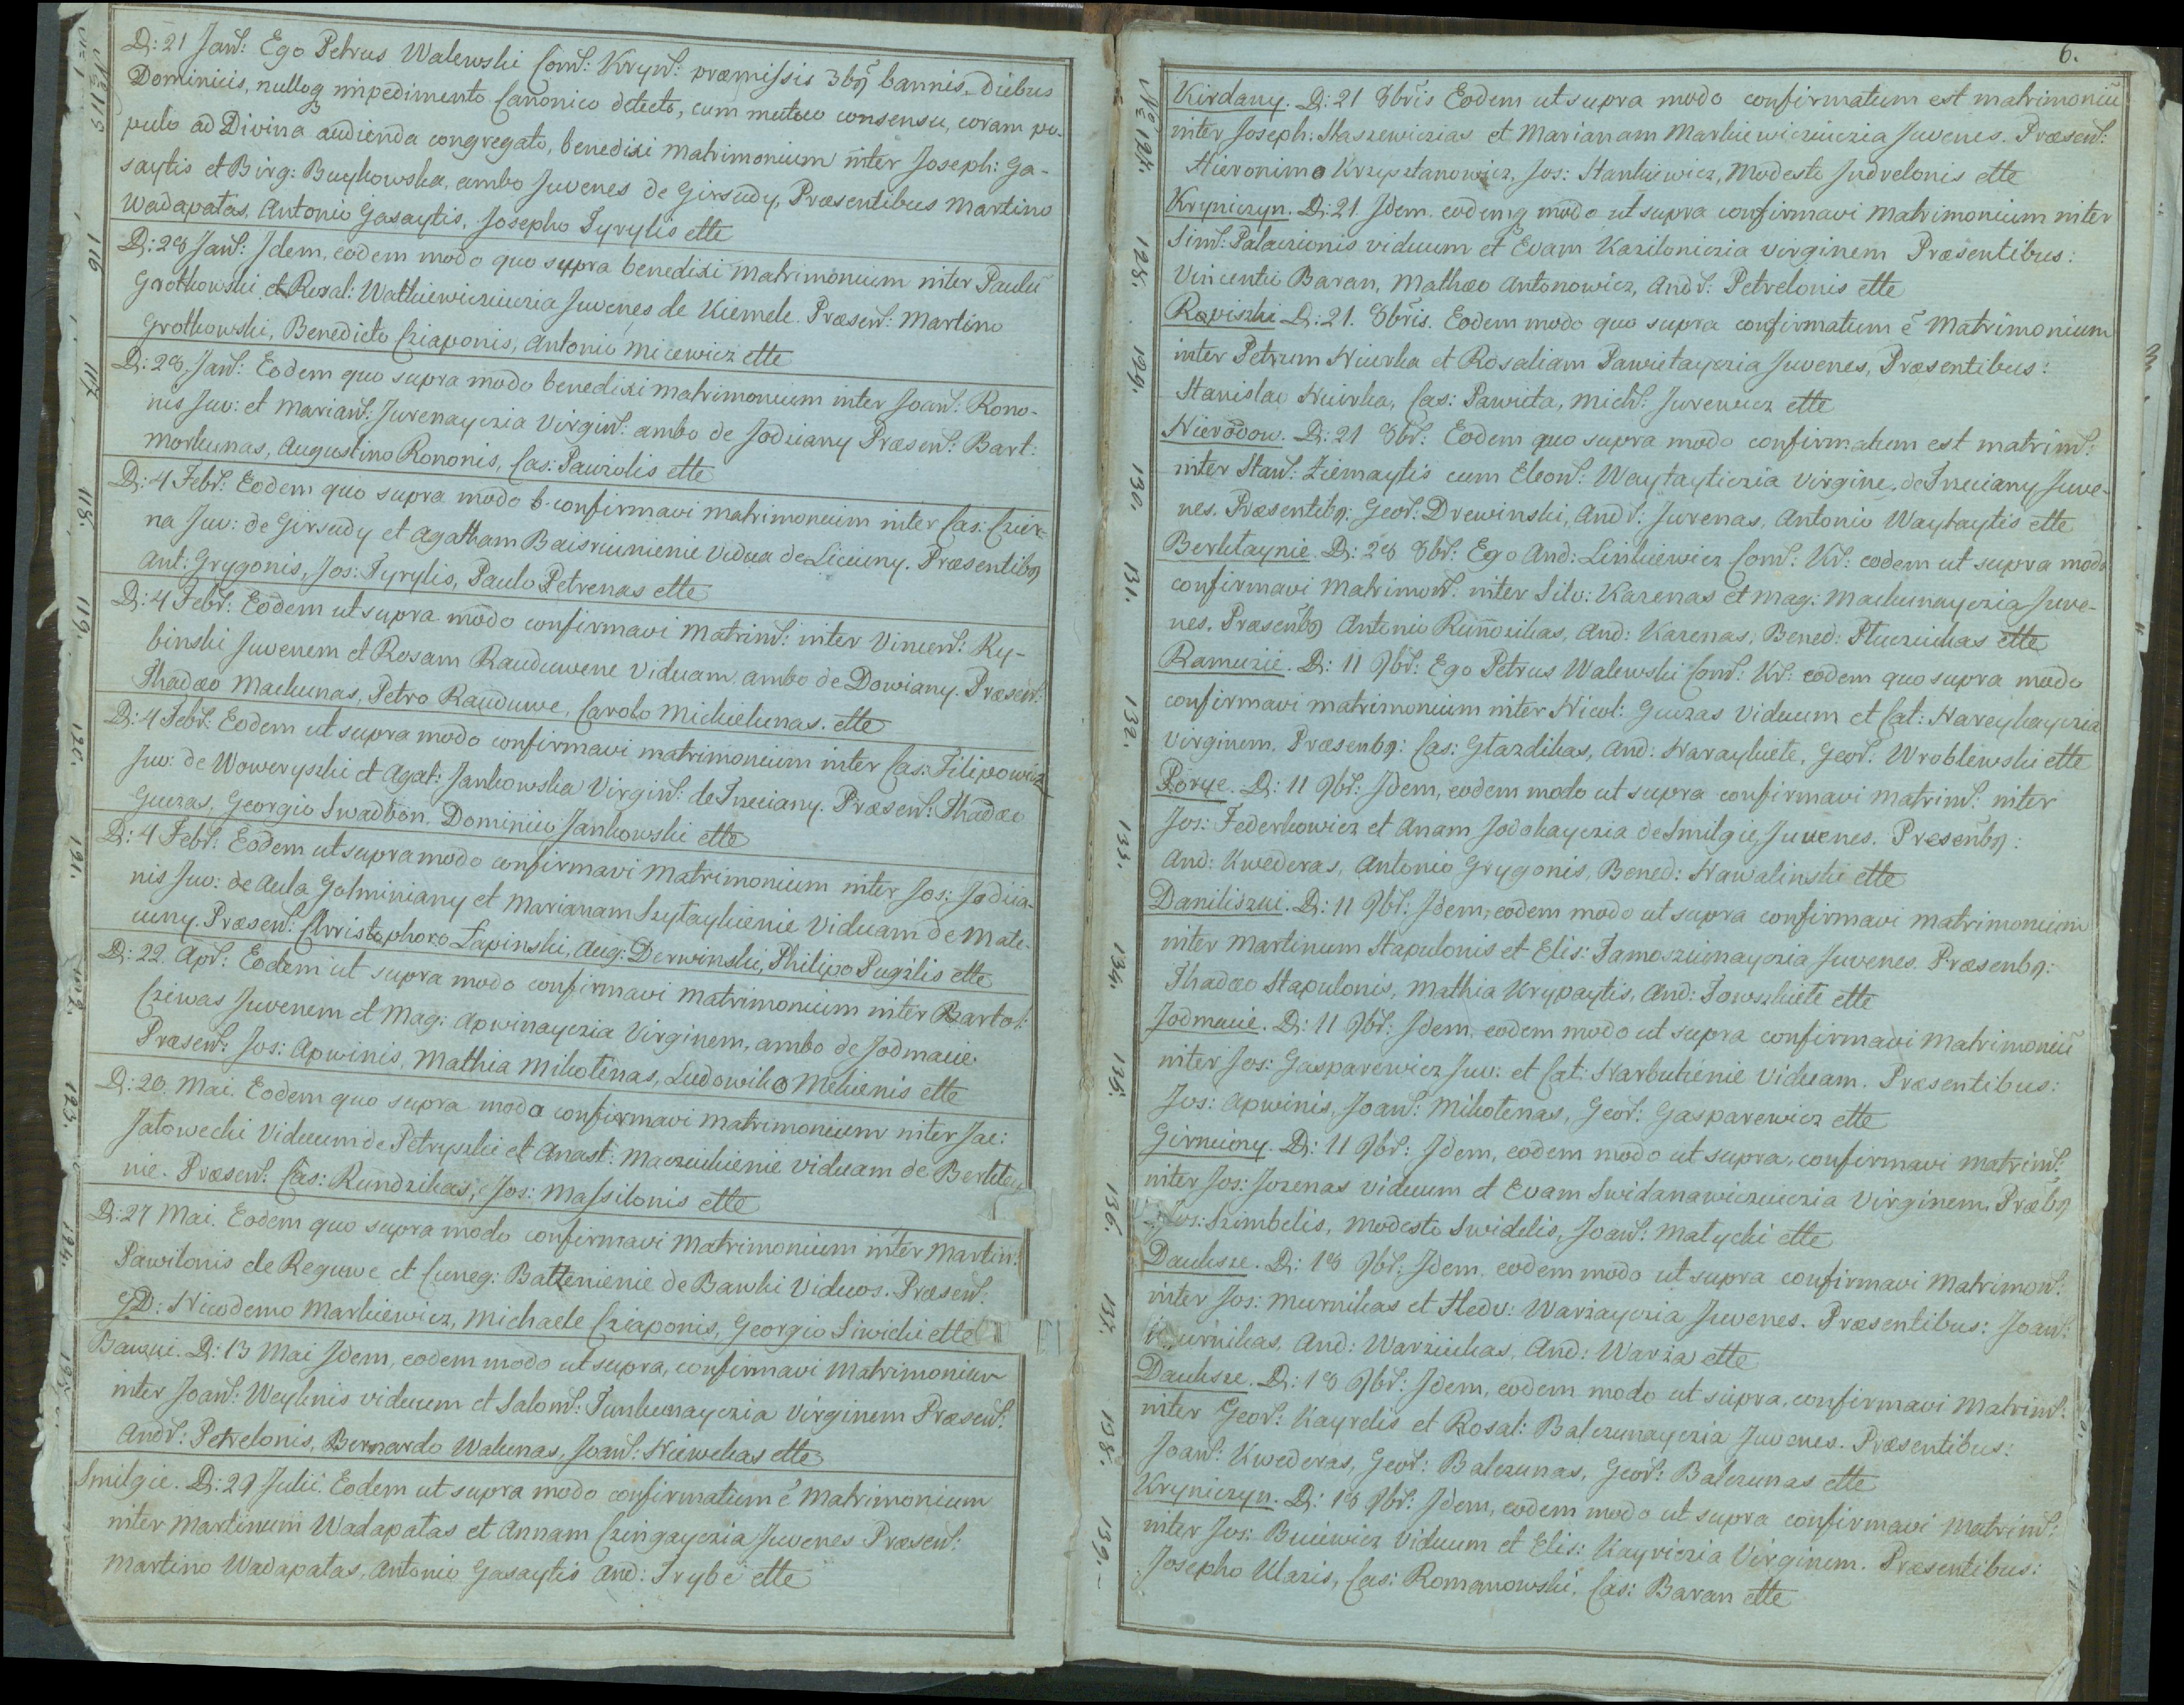 D: 21 Janr: Ego Petrus Walewski Comr: Krynr: præmissis 3bq bannis, diebus
Dominicis, nulloq impedimento Canonico detecto, cum mutuo consensu, coram po-
pulo ad Divina audienda congregato, benedixi matrimonium inter Joseph: Ga-
saytis et Birg: Buykowska, ambo Juvenes de Girsudy, Præsentibus Martino
Wadapatas, Antonio Gasaytis, Josepho Tyrylis ette
Nr 115
D: 28 Janr: Idem, eodem modo quo supra benedixi Matrimonium inter Paulū
Grotkowski et Rosal: Wathiewicziuczia Juvenes de Kiemele. Præsenr: Martino
Grotkowski, Benedicto Cziaponis, Antonio Micewicz ette
116
D: 28, Janr: Eodem quo supra modo benedixi matrimonium inter Joanr: Rono-
nis Juv: et Marianr: Jurenayczia Virginr: ambo de Jodziany Præsenr: Bart:
Morkunas, Augustino Rononis, Cas: Pawzolis ette
117.
D: 4 Febr: Eodem quo supra modo b. confirmavi Matrimonium inter Cas: Czier-
na Juv: de Girsudy et Agatham Baisriunienie Vidua de Liciuny. Præsentibq
Ant: Grygonis, Jos: Tyrylis, Paulo Petrenas ette
118.
D: 4 Febr: Eodem ut supra modo confirmavi Matrimr: inter Vincenr: Ry-
binski Juvenem et Rosam Rauduwene Viduam ambo de Dowiany. Præsenr:
Thadæo Mackunas, Petro Rauduwe, Carolo Mickielunas. ette
119.
D: 4 Febr: Eodem ut supra modo confirmavi matrimonium inter Cas: Filipowicz
Juv: de Woweryszki et Agat: Jankowska Virginr: de Jneciany. Præsenr: Thadæo
Guczas, Georgio Swadbon, Dominico Jankowski ette
120.
D: 4 Febr: Eodem ut supra modo confirmavi Matrimonium inter Jos: Jodzia-
nis Juv: de Aula Golminiany et Marianam Szytaykienie Viduam de Mate-
uuny. Præsenr: Christophoro Lapinski, Aug: Derwinski, Philipo Pugzlis ette
121.
D: 22. Apr: Eodem ut supra modo confirmavi Matrimonium inter Bartol:
Cziwas Juvenem et Mag: Apwinayczia Virginem, ambo de Jodmacie
Præsenr: Jos: Apwinis, Mathia Mikolenas, Ludowiko Mekienis ette
122.
D: 20. Mai. Eodem quo supra modo confirmavi Matrimonium inter Jac:
Jatowecki Viduum de Petryszki et Anast: Macziukienie viduam de Berktay
nie. Præsenr: Cas: Rundzikas, Jos: Massilonis ette
123.
D: 27 Mai. Eodem quo supra modo confirmavi Matrimonium inter Martin:
Pawilonis de Reguwe et Cuneg: Battenienie de Bawki Viduos. Præsenr:
GD: Nicodemo Markiewicz, Michaele Cziaponis, Georgio Siwicki ette
124.
Bauzui. D: 13 Mai Idem, eodem modo ut supra, confirmavi Matrimonium
inter Joanr: Weyknis viduum et Salomr: Junkunayczia Virginem Præsenr:
Andr: Petrelonis, Bernardo Walunas, Joanr: Niewekas ette
125.
Smilgie. D: 29 Julii. Eodem ut supra modo confirmatum ē Matrimonium
inter Martinum Wadapatas et Annam Czingayczia Juvenes Præsenr:
Martino Wadapatas, Antonio Gasaytis And: Trybe ette
6.
Kirdany. D: 21 8bris Eodem ut supra modo confirmatum est matrimoniū
inter Joseph: Staszewiczias et Marianam Markiewicziuczia Juvenes. Præsenr:
Hieronimo Krzysztanowicz, Jos: Stankiewicz, Modesto Judrelonis ette
Nr 127.
Kryniczyn. D: 21. Idem, eodemq modo ut supra confirmavi Matrimonium inter
Simr: Palaczionis viduum et Evam Kaziloniczia virginem Præsentibus:
Vincentio Baran, Mathæo Antonowicz, Andr: Petrelonis ette
128.
Rowiszki D: 21. 8bris. Eodem modo quo supra confirmatum ē Matrimonium
inter Petrum Niurka et Rosaliam Pawietayczia Juvenes, Præsentibus:
Stanislao Niurka, Cas: Pawieta, Michr: Jurewicz ette
129.
Nierodow. D: 21 8br: Eodem quo supra modo confirmatum est matrimr:
inter Stanr: Ziemaytis cum Eleonr: Waytayticzia Virgine, de Jneciany Juve-
nes. Præsentibq: Geor: Drewinski, Andr: Jurenas, Antonio Waytaytis ette
130.
Berktaynie. D: 28 8br: Ego And: Linkiewicz Comr: Kr: eodem ut supra modo
confirmavi Matrimonr: inter Silv: Karenas et Mag: Mackunayczia Juve-
nes. Præsenbq Antonio Runozikas, And: Karenas, Bened: Stucziukas ette
131.
Ramucie. D: 11 9br: Ego Petrus Walewski Comr: Kr: eodem quo supra modo
confirmavi matrimonium inter Nicol: Guzas Viduum et Cat: Nareykayczia
Virginem. Præsenbq: Cas: Glazdikas, And: Naraykiete, Geor: Wroblewski ette
132.
Porye. D: 11 9br: Idem, eodem modo ut supra confirmavi Matrimr: inter
Jos: Federkowicz et Anam Jodokayczia de Smilgie, Juvenes. Præsenbq:
And: Kwederas, Antonio Grygonis, Bened: Nawalinski ette
133.
Daniliszui. D: 11 9br: Idem, eodem modo ut supra confirmavi matrimonium
inter Martinum Stapulonis et Elis: Tamoszunayczia Juvenes. Præsenbq:
Thadæo Stapulonis, Mathia Krypaytis, And: Towszkiete ette
134.
Jodmacie. D: 11 9br: Idem, eodem modo ut supra confirmavi Matrimoniū
inter Jos: Gasparewicz Juv: et Cat: Narbutienie Viduam. Præsentibus:
Jos: Apwinis, Joanr: Mikotenas, Geor: Gasparewicz ette
135.
Girniuny. D: 11 9br: Idem, eodem modo ut supra, confirmavi matrimr:
inter Jos: Jozenas viduum et Evam Swidanawicziuczia Virginem. Præbq
Jos: Szimbelis, Modesto Swidelis, Joanr: Matycki ette
136.
Dauksze. D: 18 9br: Idem, eodem modo ut supra confirmavi Matrimonr:
inter Jos: Murnikas et Hedv: Warzayczia Juvenes. Præsentibus: Joanr:
Murnikas, And: Warziukas, And: Warza ette
137.
Dauksze. D: 18 9br: Idem, eodem modo ut supra, confirmavi Matrimr:
inter Geor: Kayrelis et Rosal: Balczunayczia Juvenes. Præsentibus:
Joanr: Kwederas, Geor: Balczunas, Geor: Balczunas ette
138.
Kryniczyn. D: 18 9br: Idem, eodem modo ut supra confirmavi Matrimr:
inter Jos: Buciewicz Viduum et Elis: Kayriczia Virginem. Præsentibus:
Josepho Klaxis, Cas: Romanowski, Cas: Baran ette
139.